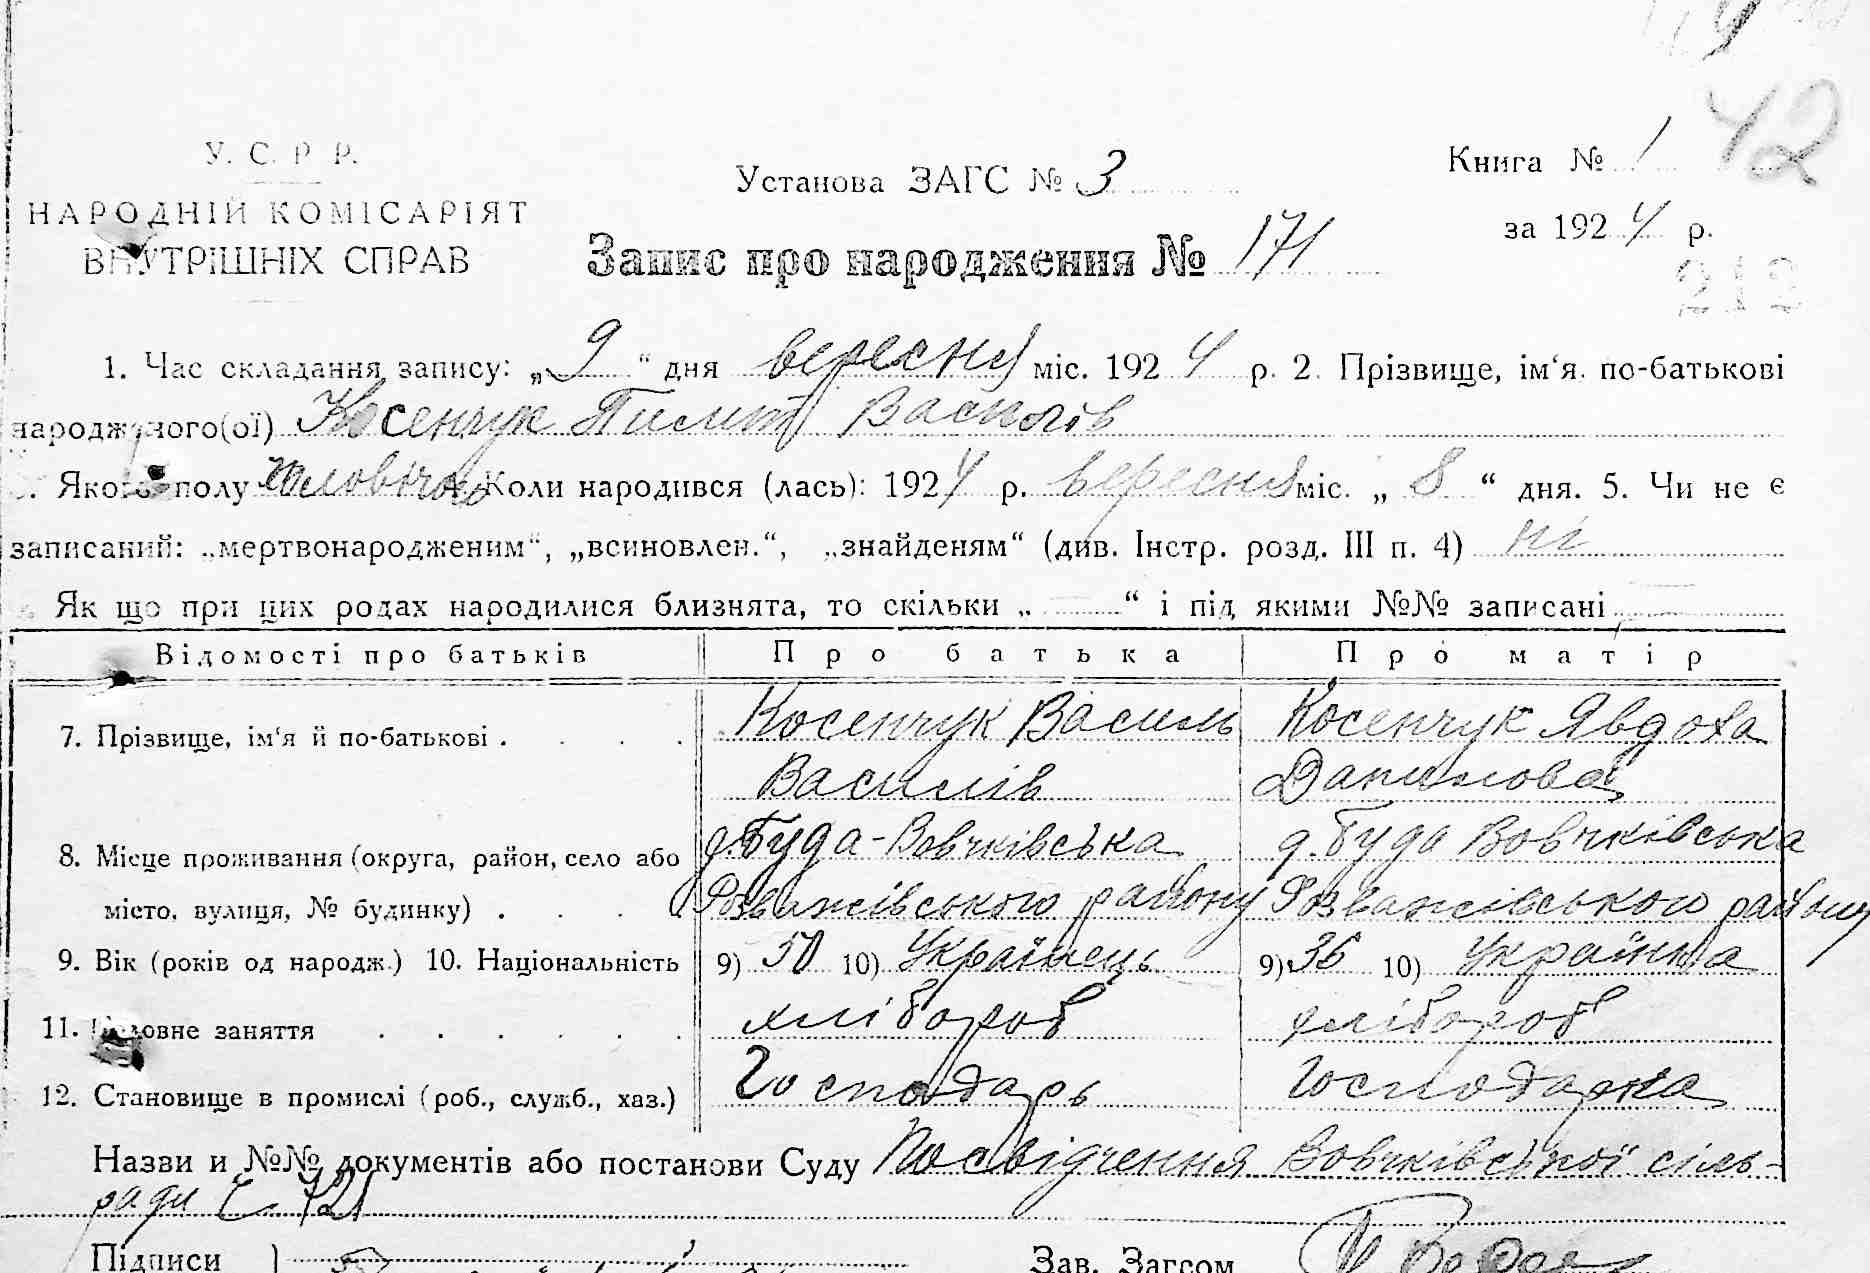 42
У. С. Р. Р.
НАРОДНІЙ КОМІСАРІЯТ
ВНУТРІШНІХ СПРАВ
Установа ЗАГС № 3
Книга № 1
за 1924 р.
Запис про народження № 171
212
1. Час складання запису: „9“ дня вересня міс. 1924 р. 2. Прізвище, ім‘я. по-батькові
народженого(ої) Косенчук Пилип Василів
Якого полу чоловічого 4. Коли народився (лась): 1924 р. вересня міс. „8“ дня. 5. Чи не є
записаний: „мертвонародженим“, „всиновлен.“, „знайденям“ (див. Інстр. розд. III п. 4) ні
Як що при цих родах народилися близнята, то скільки „ “ і під якими №№ записані
Відомості про батьків Про батька Про матір
7. Прізвище, ім‘я й по-батькові . . . . Косенчук Василь Косенчук Явдоха
Василів Данилова
8. Місце проживання (округа, район, село або д. Буда-Вовчківська д. Буда Вовчківська
місто, вулиця, № будинку) . . . Розважівського району Розважівського району
9. Вік (років од народж.) 10. Національність 9) 50 10) Українець 9) 36 10) Українка
11. Головне заняття . . . . . . хлібороб хлібороб
12. Становище в промислі (роб., служб., хаз.) Господарь Господарка
Назви и №№ документів або постанови Суду Посвідчення Вовчківської сіль-
ради Ч. 721
Підписи Зав. Загсом